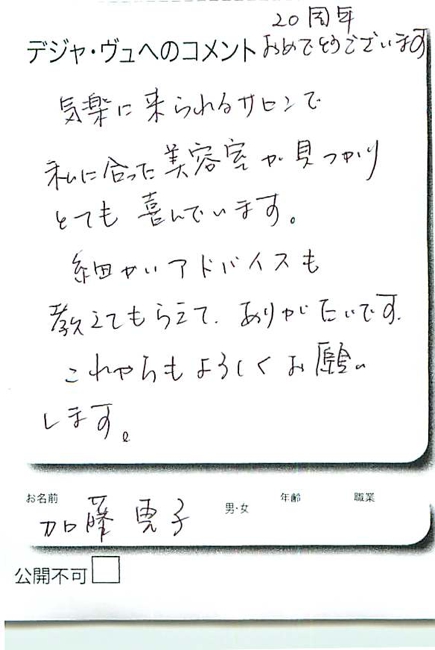 20周年
デジャ・ヴュへのコメント おめでとうございます
気楽に来られるサロンで
私に合った美容室が見つかり
とても喜んでいます。
細かいアドバイスも
教えてもらえて、ありがたいです。
これからもよろしくお願い
します。
お名前 男・女 年齢 職業
加藤 恵子
公開不可